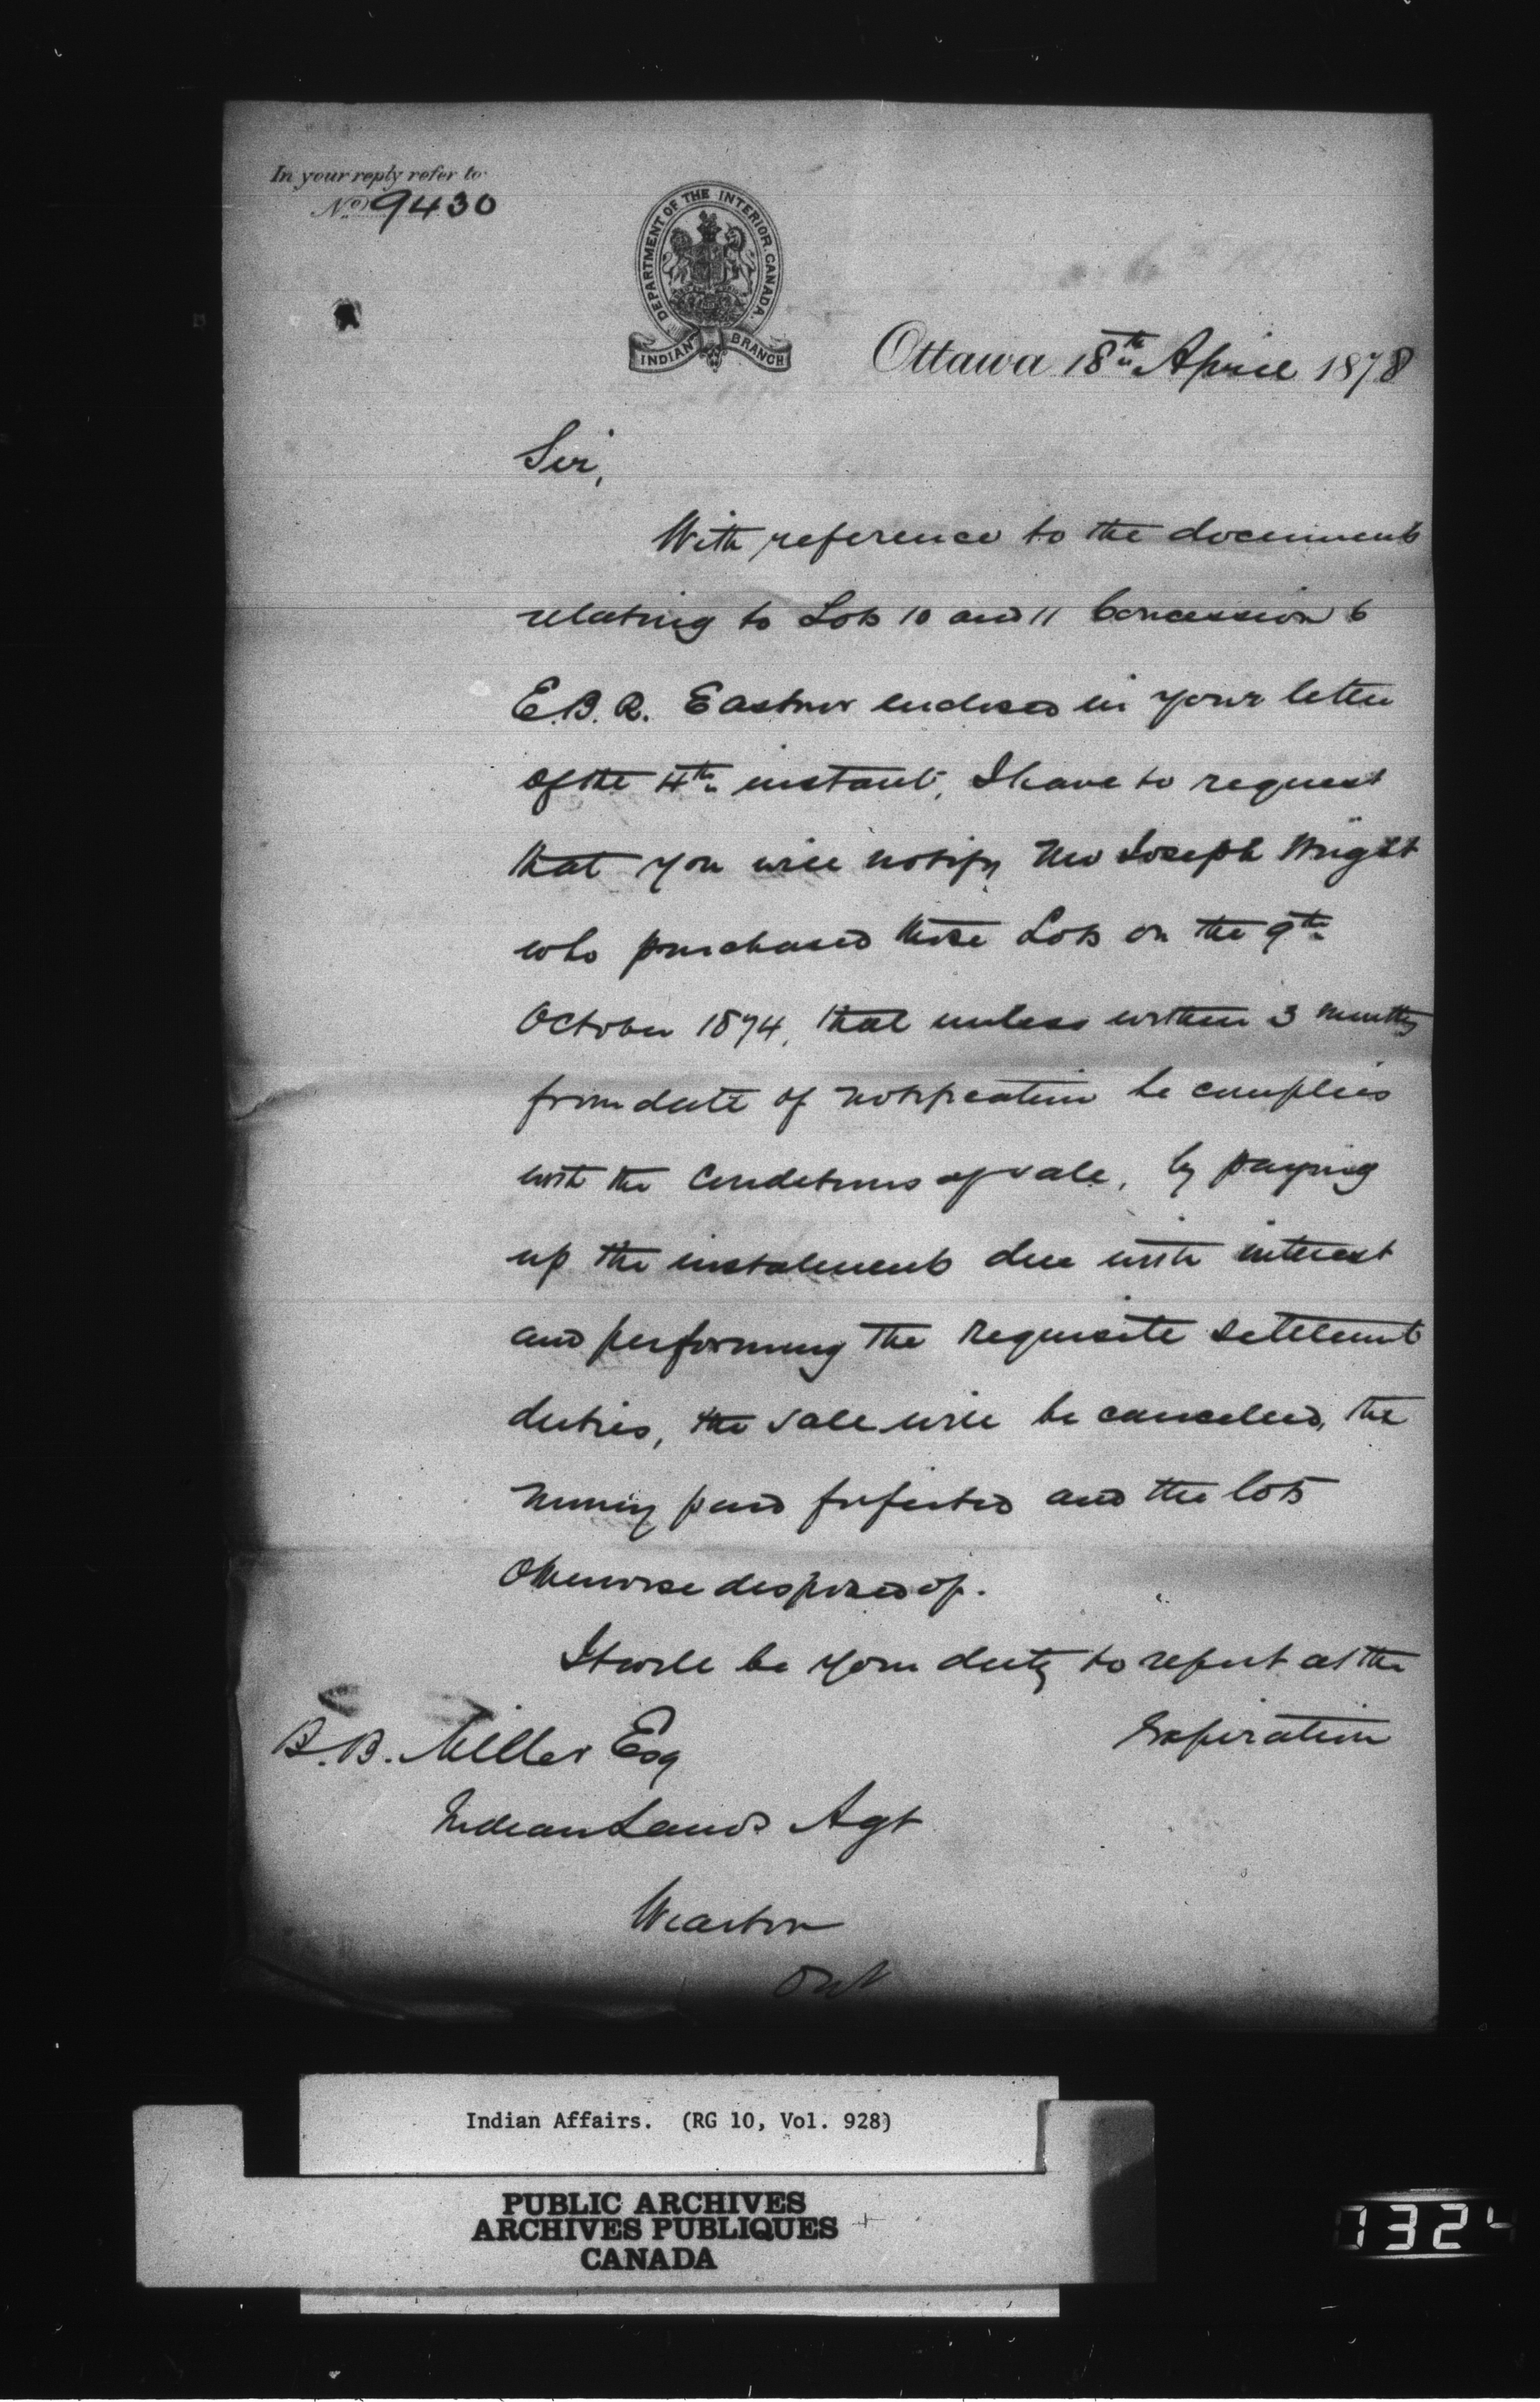 In your reply refer to
No. 9430
DEPARTMENT OF THE INTERIOR. CANADA.
INDIAN BRANCH
Ottawa 18th April 1878
Sir,
With reference to the documents
relating to Lots 10 and 11 Concession 6
E.B.R. Eastnor enclosed in your letter
of the 4th instant, I have to request
that you will notify Mr Joseph Wright
who purchased these Lots on the 9th
October 1874, that unless within 3 months
from date of notification he complies
with the Conditions of sale, by paying
up the instalments due with interest
and performing the requisite settlemt
duties, the sale will be cancelled, the
money paid forfeited and the lots
otherwise disposed of.
It will be your duty to report at the
expiration
B.B. Miller Esq
Indian Lands Agt
Wiarton
Ont
Indian Affairs. (RG 10, Vol. 928)
PUBLIC ARCHIVES
ARCHIVES PUBLIQUES
CANADA
1324